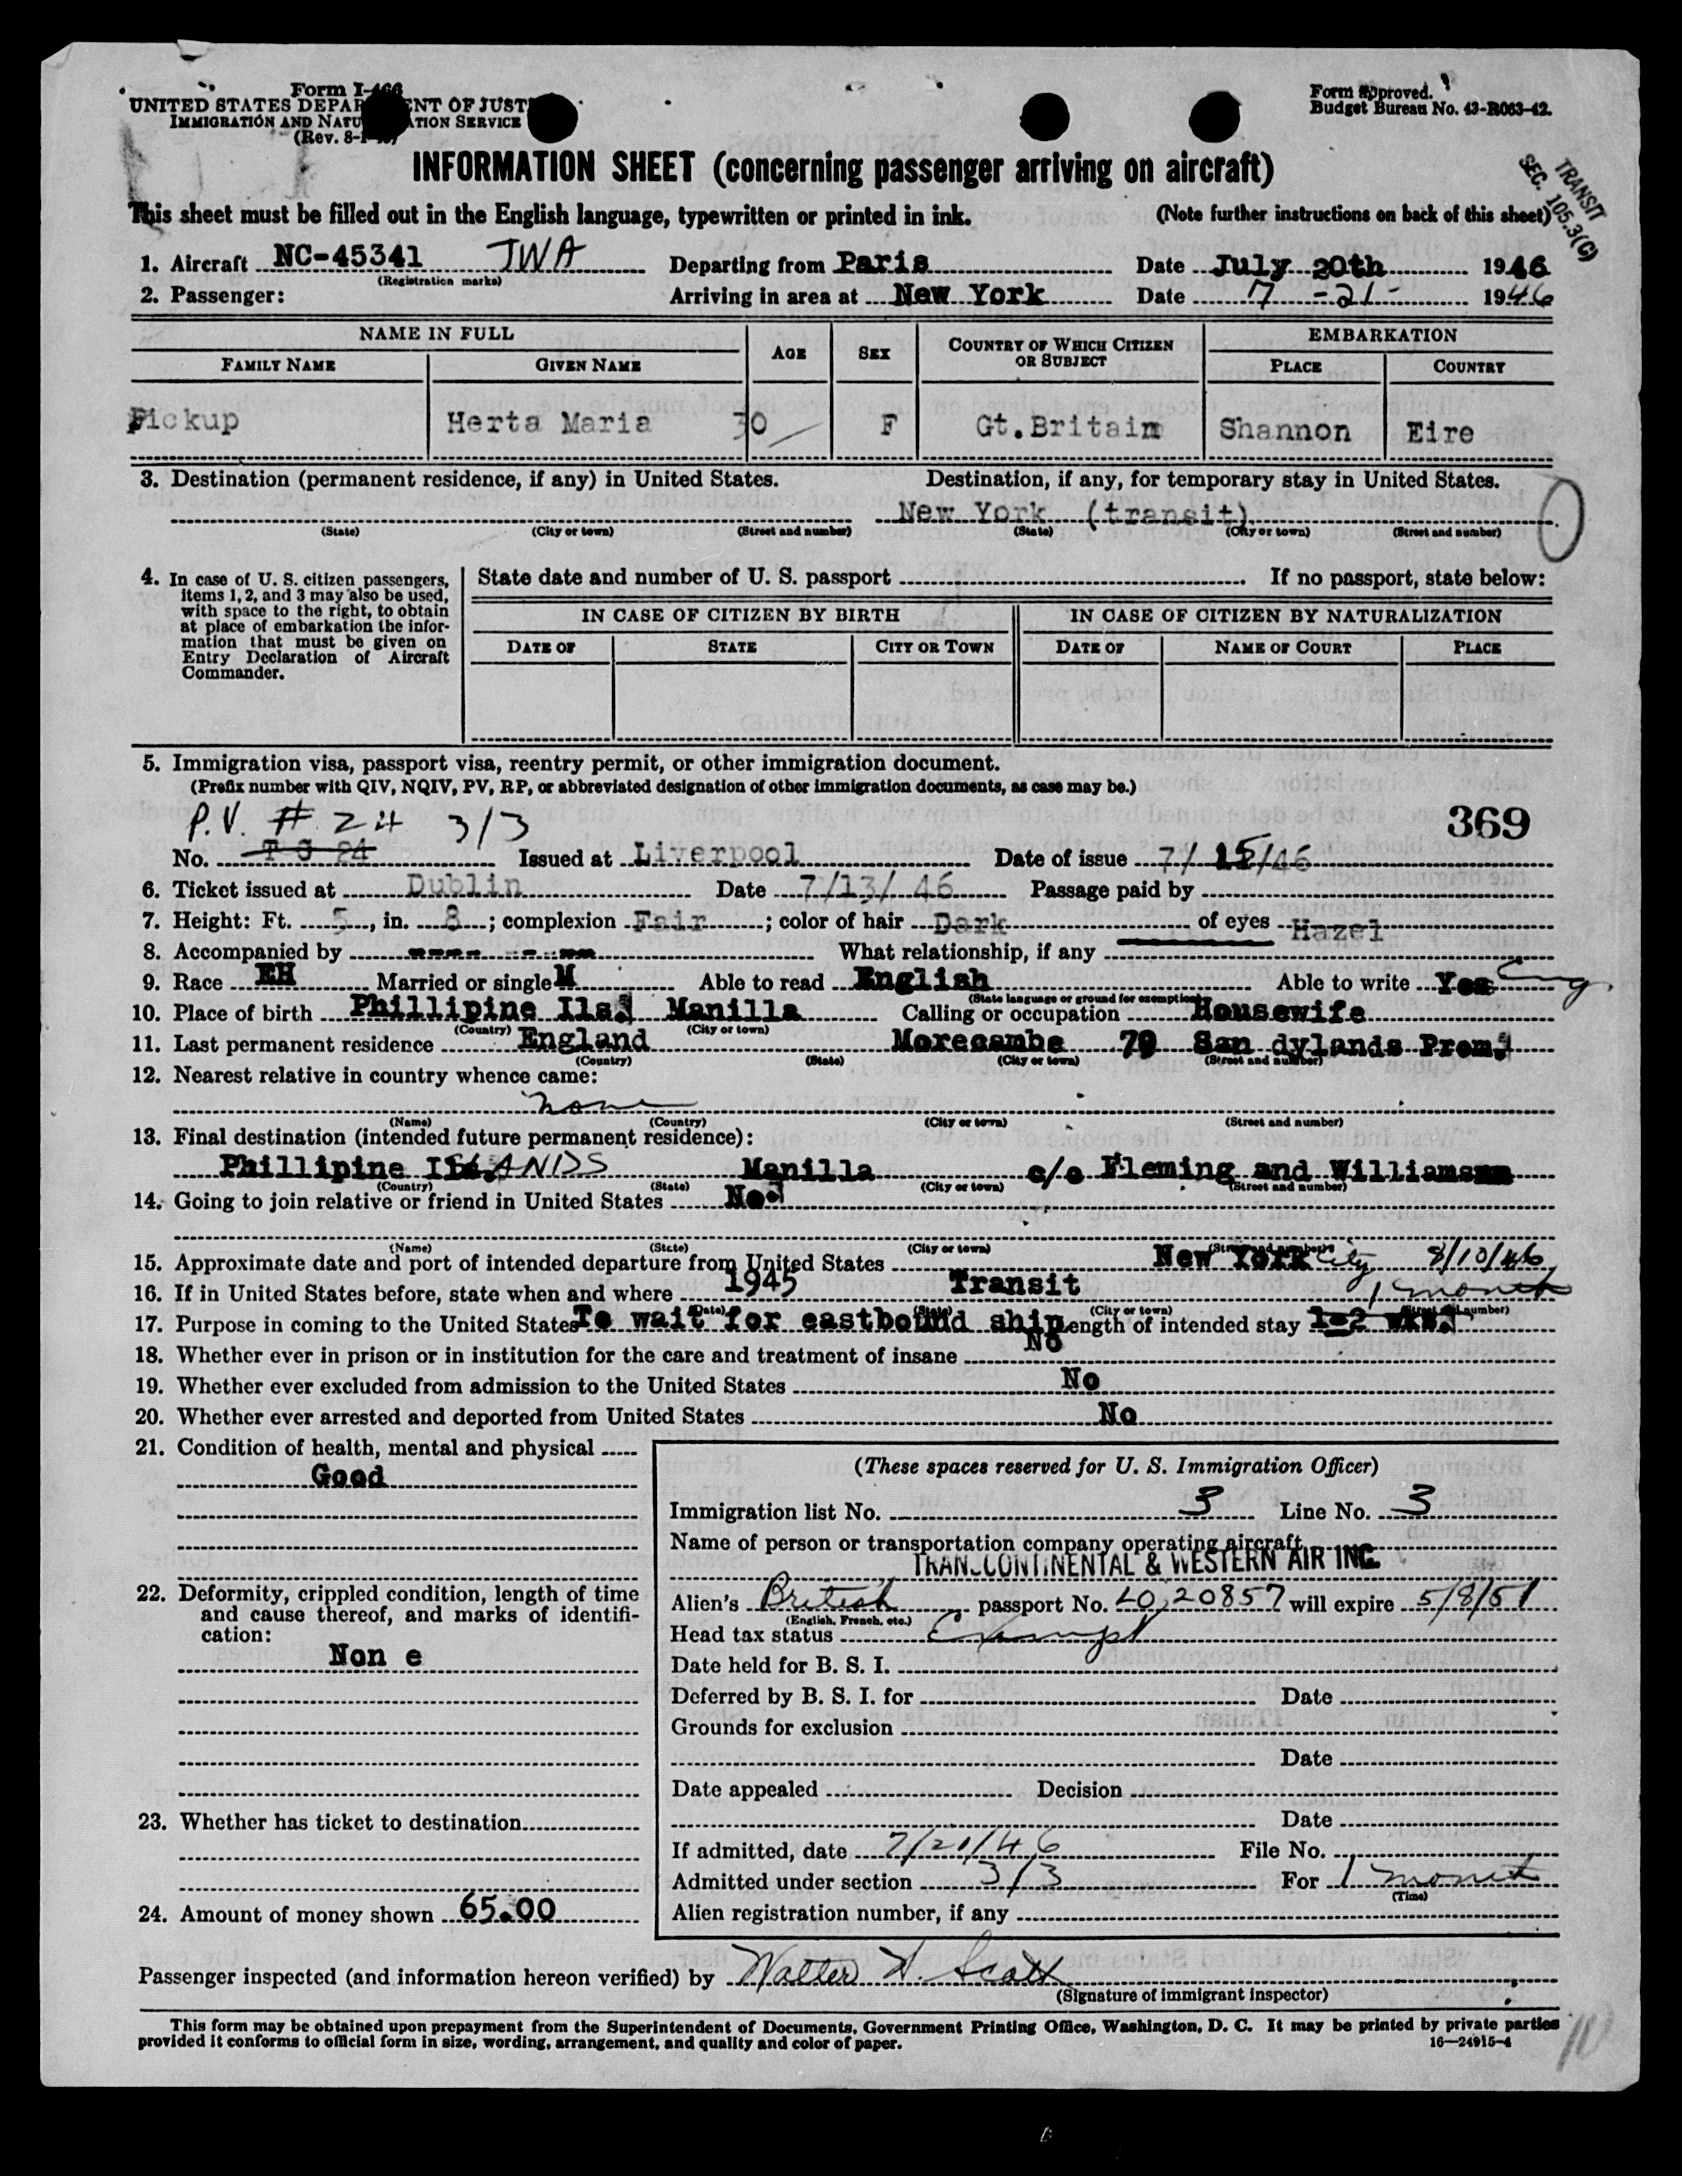 Form I-466
UNITED STATES DEPARTMENT OF JUSTICE
IMMIGRATION AND NATURALIZATION SERVICE
(Rev. 8-1-
Form approved.
Budget Bureau No. 43-R063-42.
INFORMATION SHEET (concerning passenger arriving on aircraft)
TRANSIT
SEC. 105.3(C)
This sheet must be filled out in the English language, typewritten or printed in ink. (Note further instructions on back of this sheet)
1. Aircraft NC-45341 TWA Departing from Paris Date July 20th 1946
(Registration marks)
2. Passenger: Arriving in area at New York Date 7-21- 1946
NAME IN FULL AGE SEX COUNTRY OF WHICH CITIZEN OR SUBJECT EMBARKATION
FAMILY NAME GIVEN NAME PLACE COUNTRY
Pickup Herta Maria 30 F Gt.Britain Shannon Eire
3. Destination (permanent residence, if any) in United States. Destination, if any, for temporary stay in United States.
New York (transit)
(State) (City or town) (Street and number) (State) (City or town) (Street and number)
4. In case of U. S. citizen passengers, items 1, 2, and 3 may also be used, with space to the right, to obtain at place of embarkation the information that must be given on Entry Declaration of Aircraft Commander.
State date and number of U. S. passport If no passport, state below:
IN CASE OF CITIZEN BY BIRTH IN CASE OF CITIZEN BY NATURALIZATION
DATE OF STATE CITY OR TOWN DATE OF NAME OF COURT PLACE
5. Immigration visa, passport visa, reentry permit, or other immigration document.
(Prefix number with QIV, NQIV, PV, RP, or abbreviated designation of other immigration documents, as case may be.)
P.V. # 24 3/3 369
No. Issued at Liverpool Date of issue 7/15/46
6. Ticket issued at Dublin Date 7/13/ 46 Passage paid by
7. Height: Ft. 5, in. 8; complexion Fair; color of hair Dark of eyes Hazel
8. Accompanied by What relationship, if any
9. Race EH Married or single M Able to read English Able to write Yes Eng.
(State language or ground for exemption)
10. Place of birth Phillipine Ils. Manilla Calling or occupation Housewife
(Country) (City or town)
11. Last permanent residence England Morecambe 79 San dylands Prom.
(Country) (State) (City or town) (Street and number)
12. Nearest relative in country whence came:
none
(Name) (Country) (City or town) (Street and number)
13. Final destination (intended future permanent residence):
Phillipine ISLANDS Manilla c/o Fleming and Williamson
(Country) (State) (City or town) (Street and number)
14. Going to join relative or friend in United States No.
(Name) (State) (City or town) (Street and number)
15. Approximate date and port of intended departure from United States New York City 8/10/46
16. If in United States before, state when and where 1945 Transit
(Date) (State) (City or town) (Street and number)
1 month
17. Purpose in coming to the United States To wait for eastbound ship Length of intended stay 1-2 wks.
18. Whether ever in prison or in institution for the care and treatment of insane No
19. Whether ever excluded from admission to the United States No
20. Whether ever arrested and deported from United States No
21. Condition of health, mental and physical
Good
22. Deformity, crippled condition, length of time and cause thereof, and marks of identification:
Non e
23. Whether has ticket to destination
24. Amount of money shown 65.00
(These spaces reserved for U. S. Immigration Officer)
Immigration list No. 3 Line No. 3
Name of person or transportation company operating aircraft
TRANSCONTINENTAL & WESTERN AIR INC.
Alien's British passport No. LO,20857 will expire 5/8/51
(English, French, etc.)
Head tax status Exempt
Date held for B. S. I.
Deferred by B. S. I. for Date
Grounds for exclusion
Date
Date appealed Decision
Date
If admitted, date 7/21/46 File No.
Admitted under section 3/3 For 1 month
(Time)
Alien registration number, if any
Passenger inspected (and information hereon verified) by Walter W. Scott
(Signature of immigrant inspector)
This form may be obtained upon prepayment from the Superintendent of Documents, Government Printing Office, Washington, D. C. It may be printed by private parties
provided it conforms to official form in size, wording, arrangement, and quality and color of paper. 16—24915-4